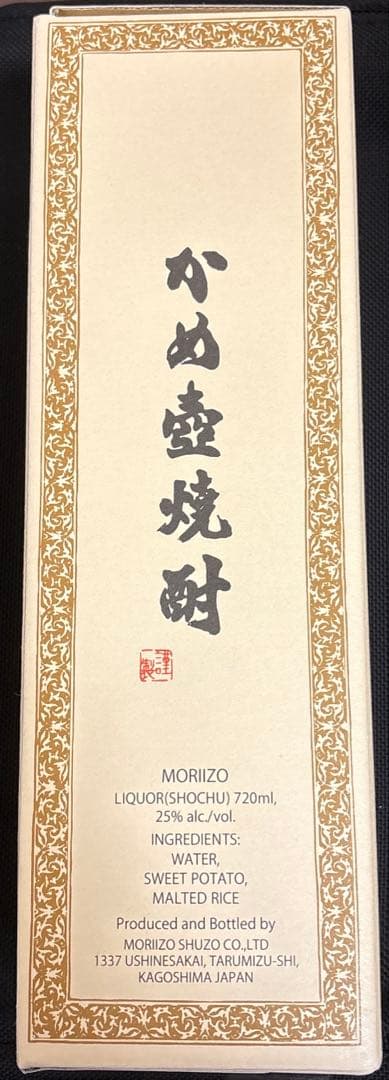 かめ壺焼酎
謹製
MORIIZO
LIQUOR(SHOCHU) 720ml,
25% alc./vol.
INGREDIENTS:
WATER,
SWEET POTATO,
MALTED RICE
Produced and Bottled by
MORIIZO SHUZO CO.,LTD
1337 USHINESAKAI, TARUMIZU-SHI,
KAGOSHIMA JAPAN